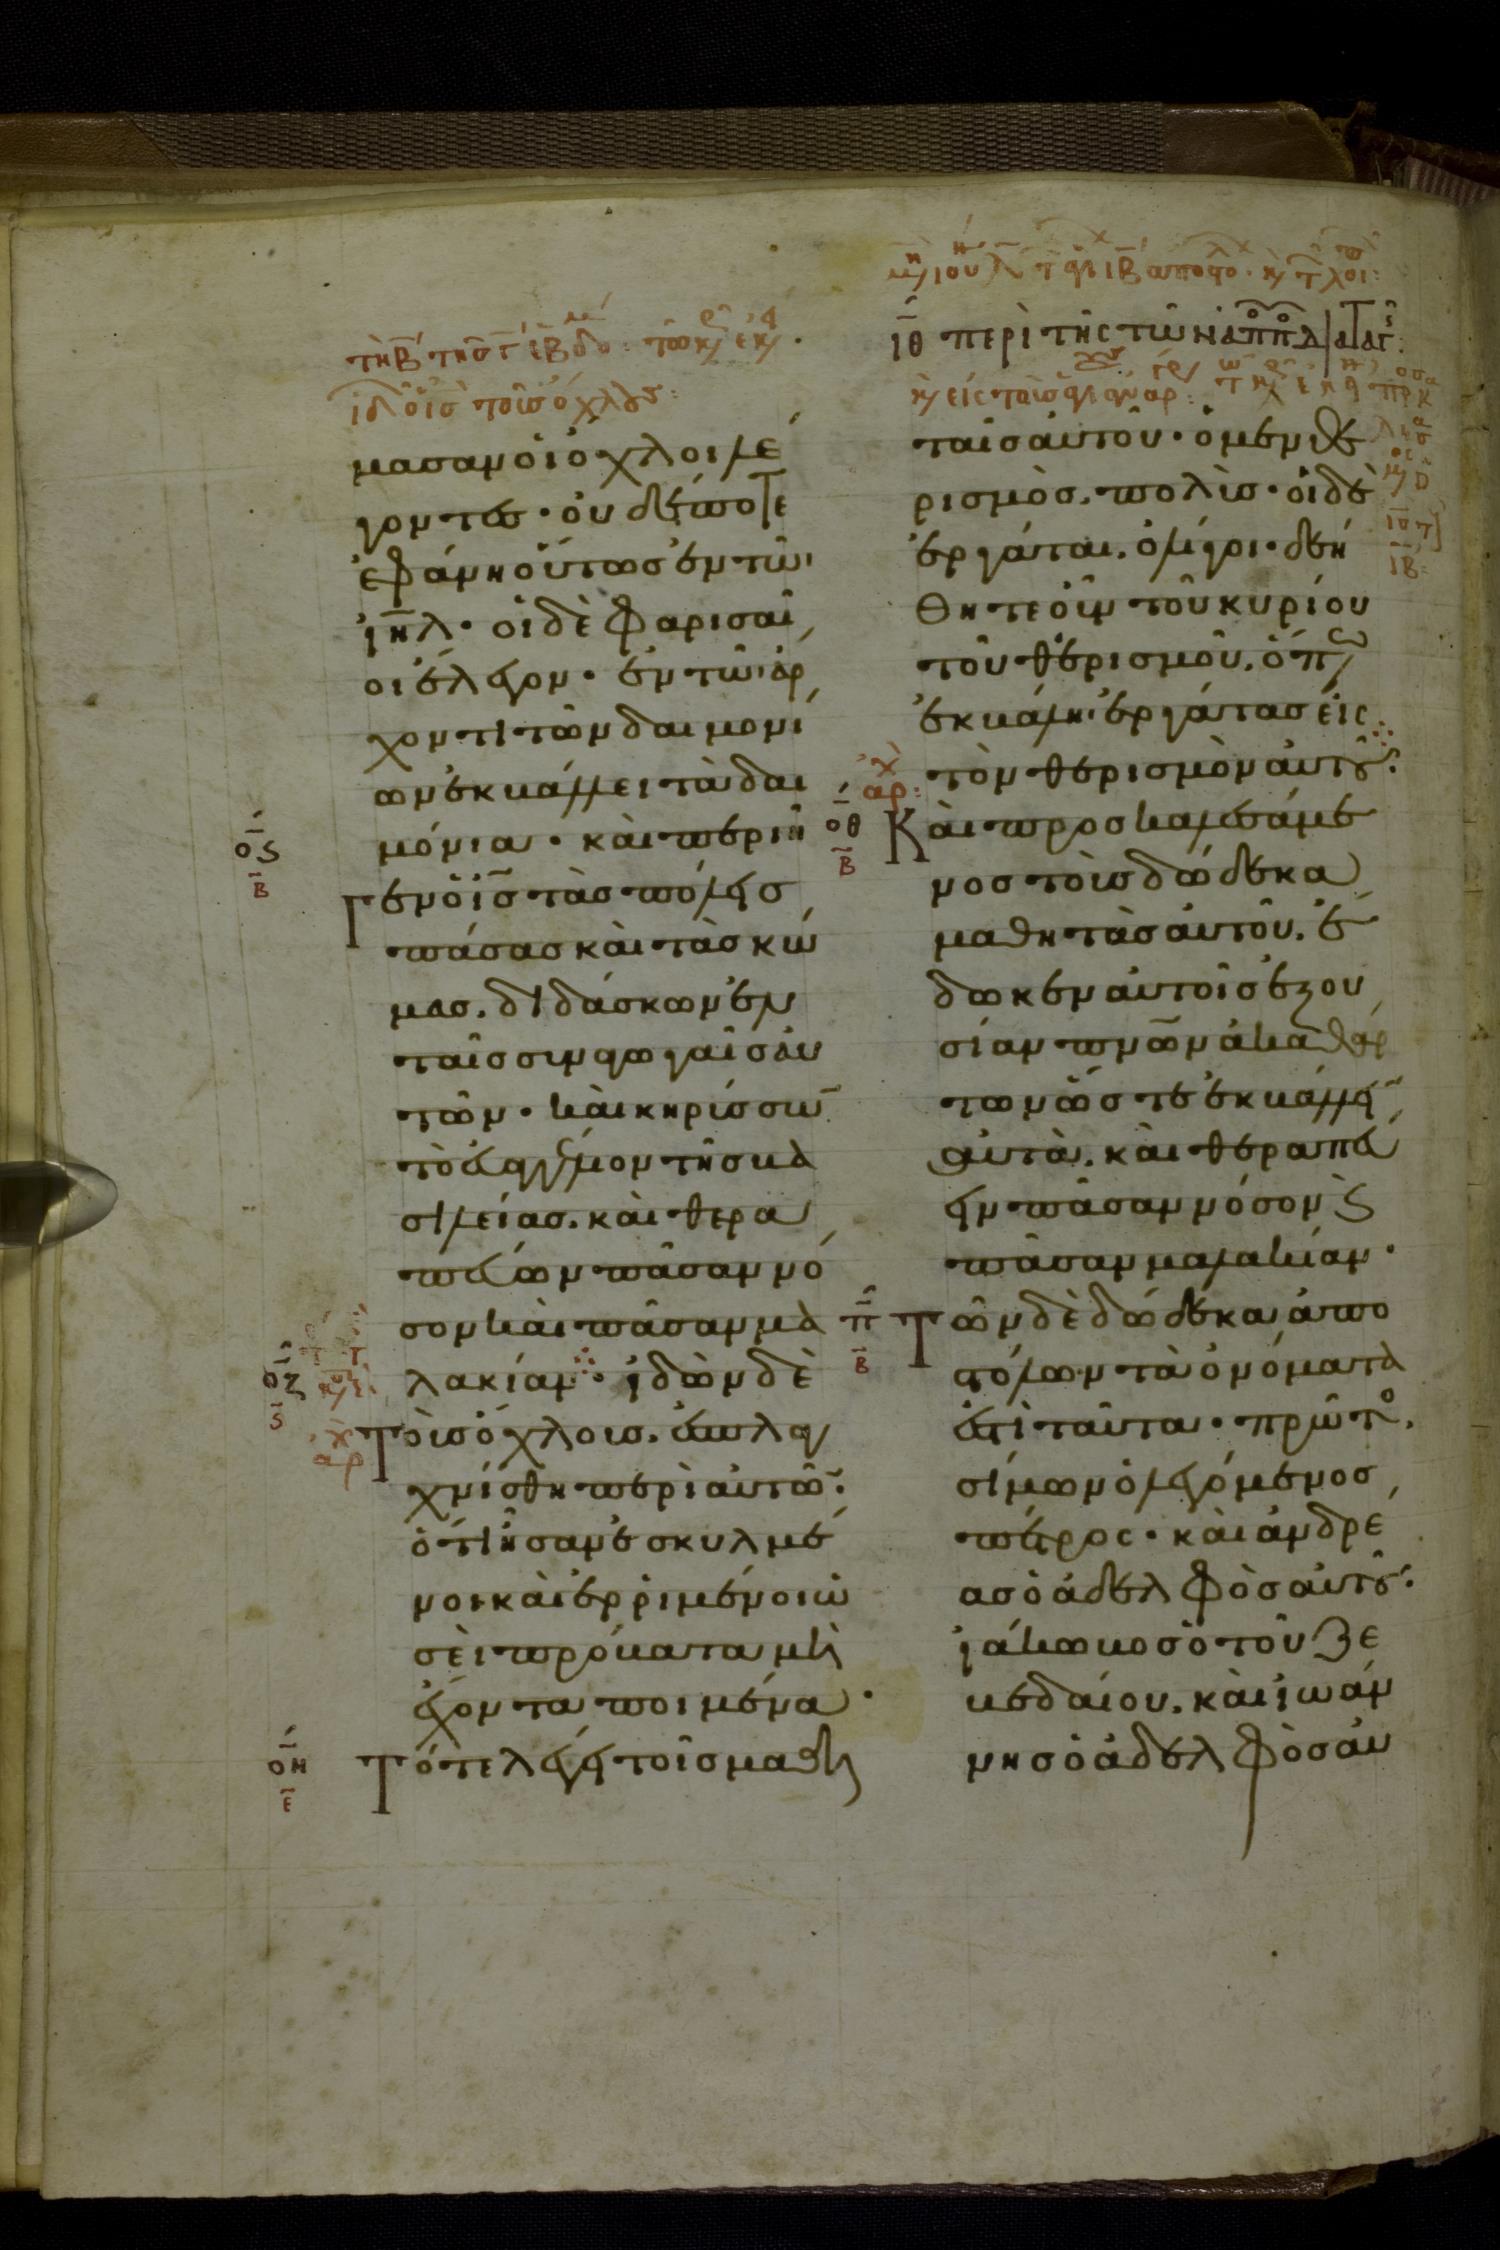 μασαν ὁι ὄχλοι λέ
γοντες· ὀυδέποτε
ἐφάνη ὅυτωσ ἐν τῶ
ιη̅λ· ὁι δὲ φαρισαῖ
οι ἔλεγον· ἐν τῶ ἄρ
χοντι τῶν δαιμονί
ων ἐκβάλλει τὰ δαι
μόνια· κὰι περιῆ
ο̅ς̅ β̅
Γεν ὁ ι̅ς̅ τὰσ πόλεισ
πάσασ κὰι τὰσ κώ
μασ. διδάσκων ἐν
ταῖσ συναγωγαῖσ ἀυ
τῶν· κὰι κηρύσσω̅
τὸ ἐυαγγέλιον τῆσ βα
σιλείασ. κὰι θερα
πεύων πᾶσαν νό
σον κὰι πᾶσαν μα
λακίαν· ἰδὼν δὲ
ο̅ζ̅ ς̅
Τοὺσ ὄχλουσ. ἐσπλαγ
χνίσθη περὶ ἀυτῶ̅·
ὅτι ἦσαν ἐσκυλμέ
νοι κὰι ἐρριμένοι ὡ
σεὶ πρόβατα μὴ
ἔχοντα ποιμένα·
ο̅η̅ ε̅
Τότε λέγει τοῖσ μαθη
ι̅θ̅ περὶ τῆς τῶν ἀποστόλων διαταγῆς:
ταῖσ ἀυτοῦ· ὁ μὲν θε
ρισμὸσ. πολὺσ· ὁι δὲ
ἐργάται. ὀλίγοι· δεή
θητε ὀῦν τοῦ κυρίου
τοῦ θερισμοῦ. ὅπως
ἐκβάλη ἐργάτασ εἰς
τὸν θερισμὸν ἀυτοῦ·
ο̅θ̅ β̅
Κὰι προσκαλεσάμε
νοσ τοὺσ δώδεκα
μαθητὰσ ἀυτοῦ. ἔ
δωκεν ἀυτοῖσ ἐξου
σίαν πν̅ῶν ἀκαθάρ
των ὥστε ἐκβάλλει̅
ἀυτὰ. κὰι θεραπεύ
ειν πᾶσαν νόσον ϗ
πᾶσαν μαλακίαν·
π̅ β̅
Τῶν δὲ δώδεκα ἀπο
στόλων τὰ ὀνόματα
ἐστὶ ταῦτα· πρῶτο.
σίμων ὁ λεγόμενοσ
πέτρος· κὰι ἀνδρέ
ασ ὁ ἀδελφὸσ ἀυτοῦ·
ἰάκωβοσ ὁ τοῦ ζε
βεδαίου. κὰι ἰωάν
νησ ὁ ἀδελφὸσ ἀυ